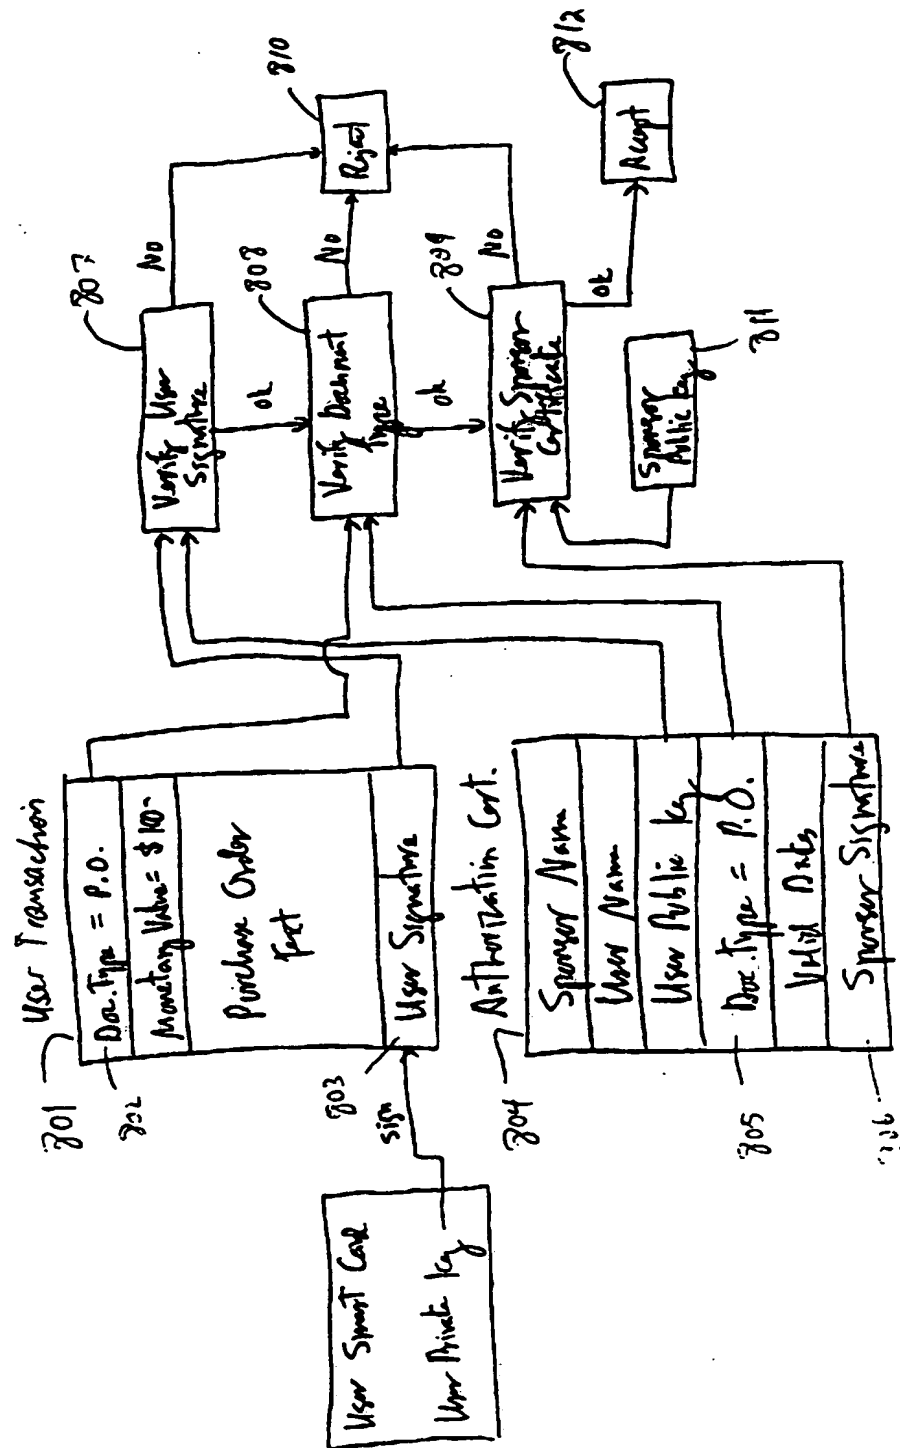 User Smart Card
User Private Key
sign
801
User Transaction
802
Doc. Type = P.O.
Monetary Value = $100
Purchase Order
Text
803
User Signature
804
Authorization Cert.
Sponsor Name
User Name
User Public Key
805
Doc. Type = P.O.
Valid Dates
Sponsor Signature
807
Verify User
Signature
No
ok
808
Verify Document
Type
No
ok
809
Verify Sponsor
Certificate
No
ok
Sponsor
Public Key
811
810
Reject
812
Accept